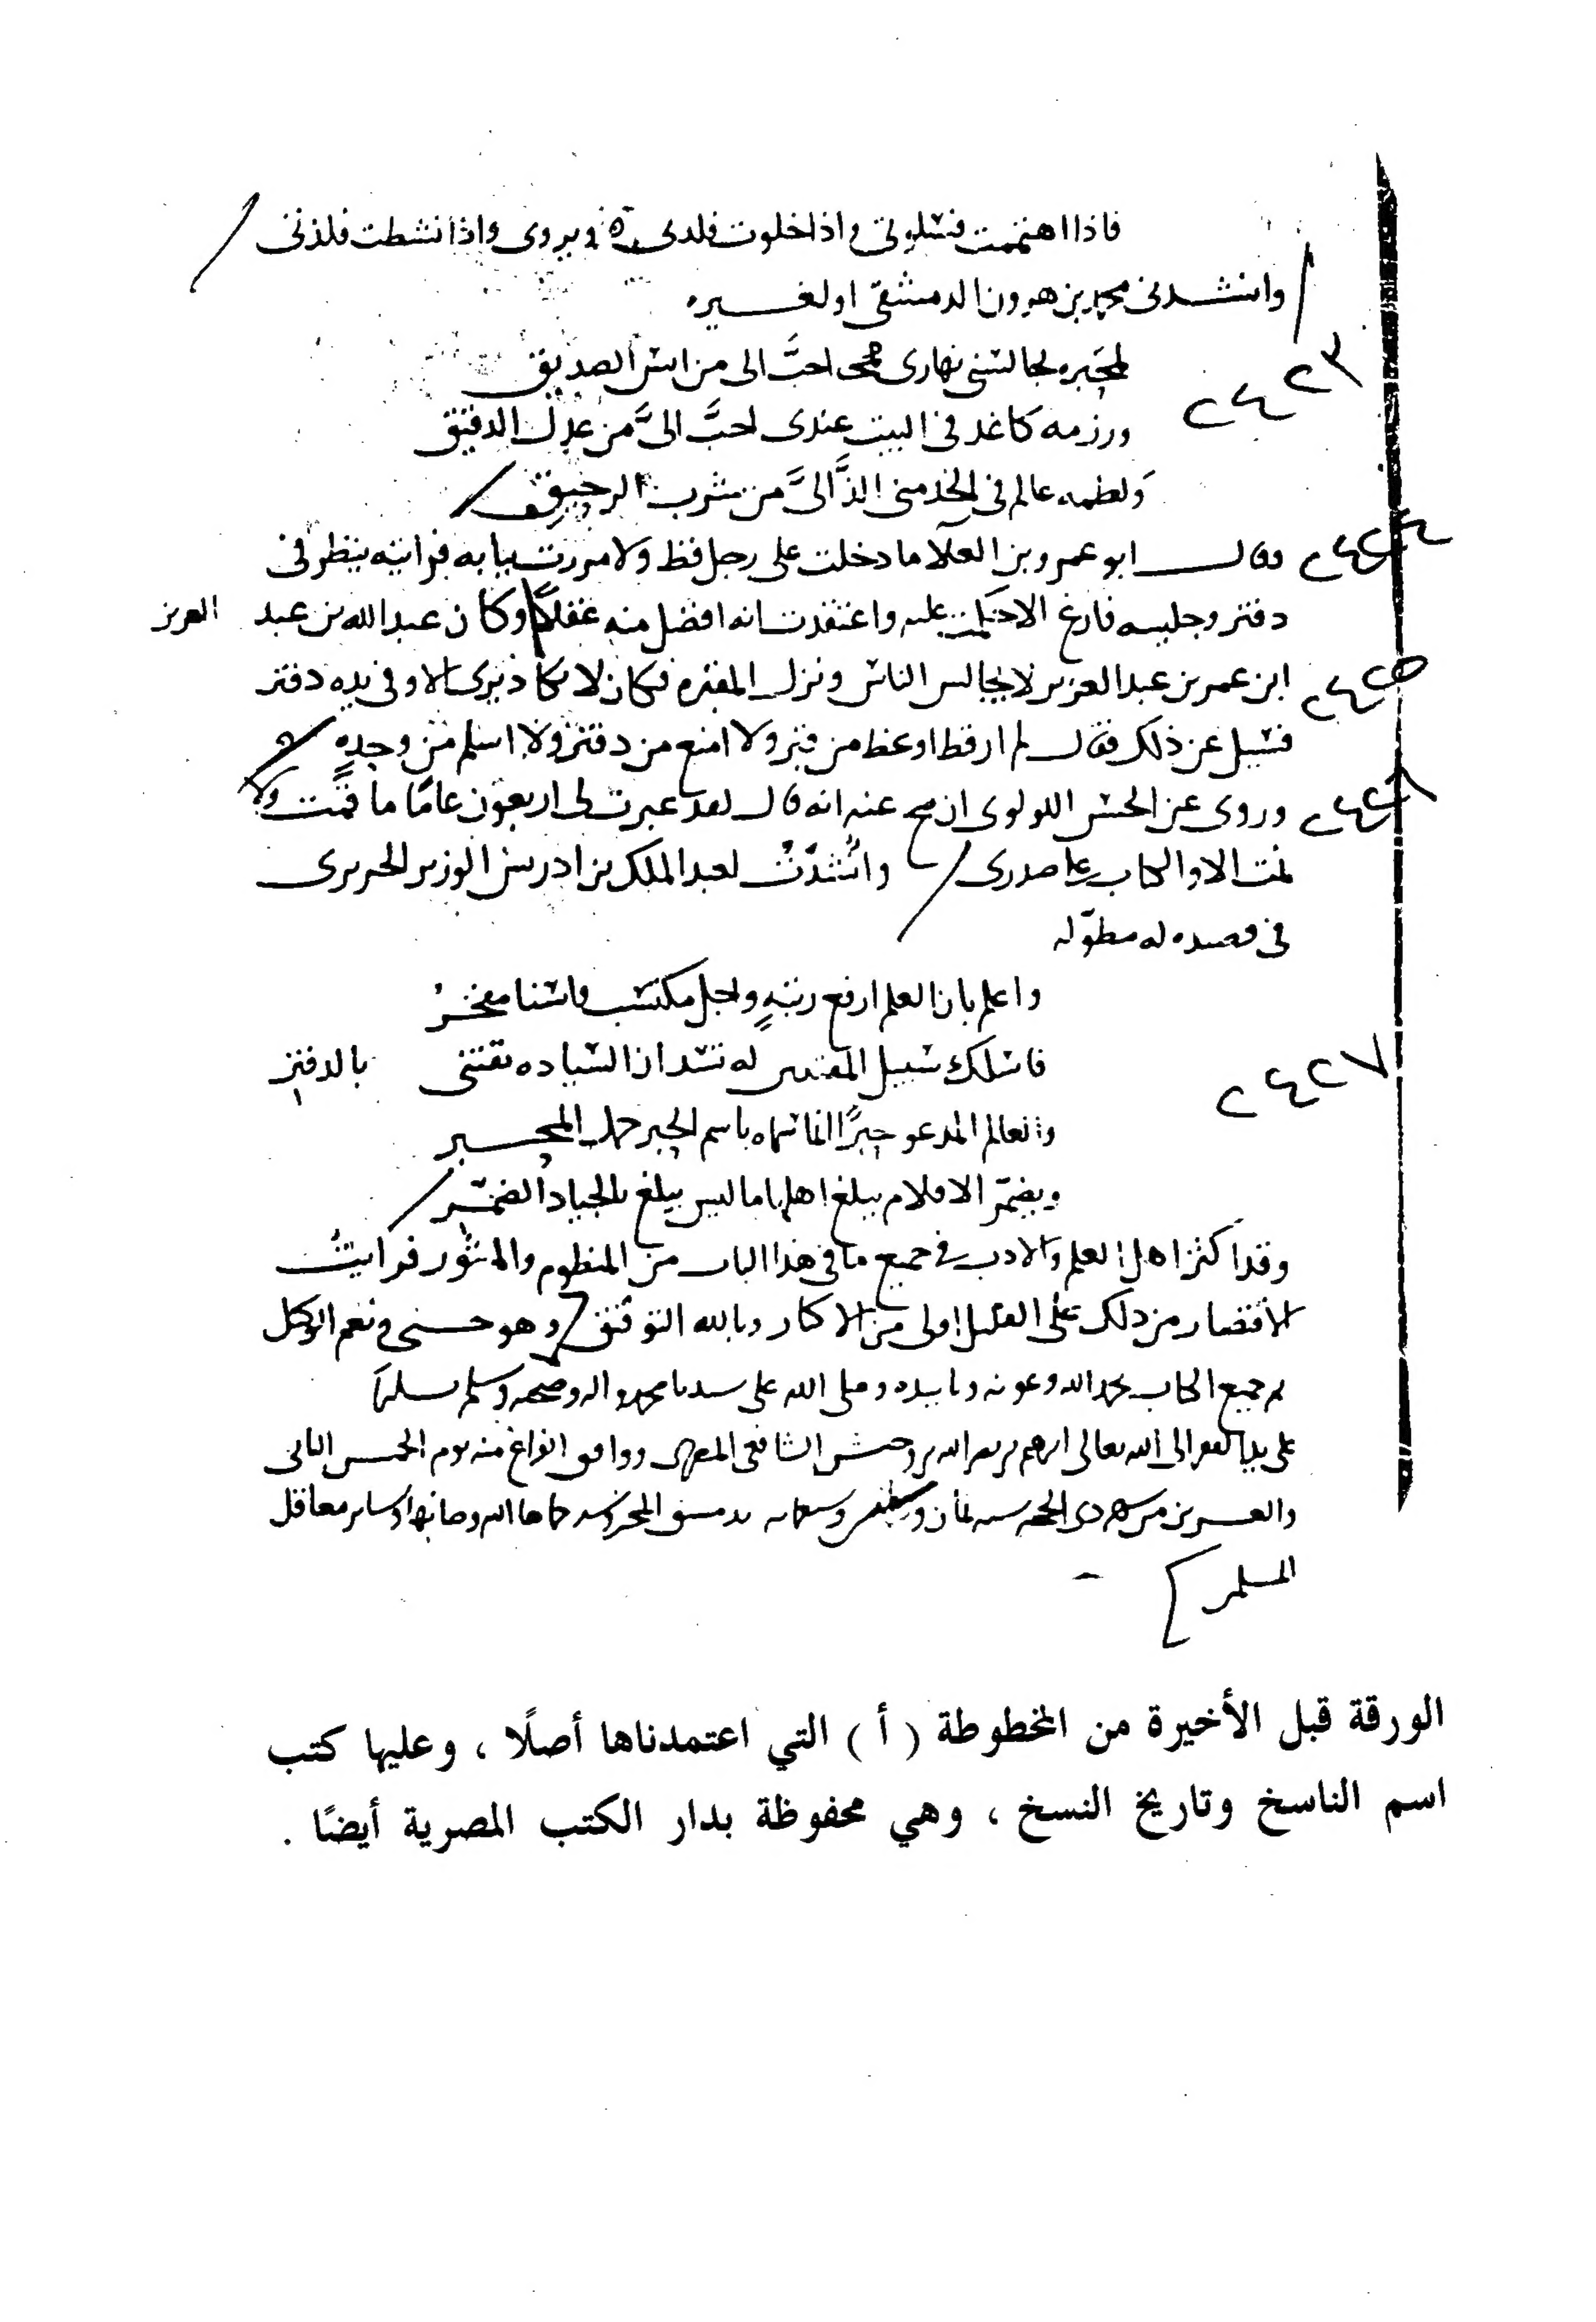 فاذا اهتممت فسلوتي واذا خلوت فلذتي واذا نشطت فلذتي
وانشدني محمد بن هرون الدمشقي او لغيره
لمحبره تجالسني نهاري احبَّ الى من انس الصديق
٢٤٢٣
ورزمه كاغد في البيت عندي احبَّ الىَّ من عدل الدقيق
ولطمه عالم في الخد مني الذَّ الىَّ من شرب الرحيق
٢٤٢٤
وقال ابو عمرو بن العلا ما دخلت على رجل قط ولا مررت ببابه فرايته ينظر في
دفتر وجليسه فارغ الا حكمت عليه واعتقدت انه افضل منه عقلاً وكان عبد الله بن عبد العزيز
٢٤٢٥
ابن عمر بن عبد العزيز لا يجالس الناس ونزل المقبره فكان لا يكاد يرى الا وفي يده دفتر
فسيل عن ذلك فقال لم ار قط اوعظ من قبر ولا امنع من دفتر ولا اسلم من وحدهٍ
٢٤٢٦
وروى عن الحسن اللولوي ان صح عنه انه قال لقد عبرت لي اربعون عامًا ما قمت ولا
نمت الا والكتاب على صدري وانشدت لعبد الملك بن ادريس الوزير الحريري
في قصيده له مطوّله
واعلم بان العلم ارفع رتبةٍ واجل مكتسب واسنا مفخر
٢٤٢٧
فاسلك سبيل المقتنين له تسد ان السياده تقتنى بالدفتر
والعالم المدعو حبرًا انما سماه باسم الحبر حمل المحبر
وبضمّر الاقلام يبلغ اهلها ما ليس يبلغ بالجياد الضمّر
وقد اكثر اهل العلم والادب في جميع ما في هذا الباب من المنظوم والمنثور فرايتُ
الاقتصار من ذلك على القليل اولى من الاكثار وبالله التوفيق وهو حسبي ونعم الوكيل
تم جميع الكتاب بحمد الله وعونه وتاييده وصلى الله على سيدنا محمد واله وصحبه وسلم تسليمًا
على يد الفقير الى الله تعالى ابرهيم بن الشافعي المصري ووافق الفراغ منه يوم الخميس الثاني
والعشرين من شهر ذي الحجه سنه ثمان وسبعمايه بدمشق المحروسه حماها الله وصانها وساير معاقل
المسلمين
الورقة قبل الأخيرة من المخطوطة ( أ ) التي اعتمدناها أصلًا ، وعليها كتب
اسم الناسخ وتاريخ النسخ ، وهي محفوظة بدار الكتب المصرية أيضًا .